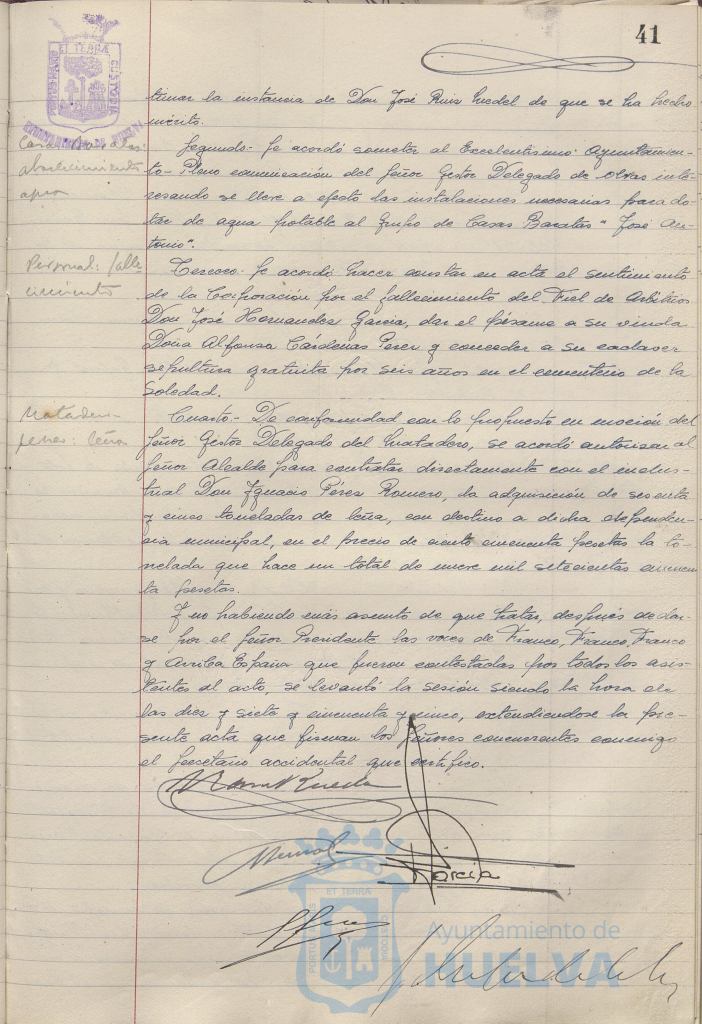 41
ET TERRA
CUSTODIA
PORTUS MARIS
timar la instancia de Don José Ruiz Huedel de que se ha hecho
mérito.
Casas Baratas:
abastecimiento
agua
Segundo.- Se acordó someter al Excelentísimo Ayuntamien-
to-Pleno comunicación del Señor Gestor Delegado de Obras inte-
resando se lleve a efecto las instalaciones necesarias para do-
tar de agua potable al Grupo de Casas Baratas "José An-
tonio".
Personal: falle-
cimiento
Tercero.- Se acordó hacer constar en acta el sentimiento
de la Corporación por el fallecimiento del Fiel de Arbitrios
Don José Hernandez Garcia, dar el pésame a su viuda
Doña Alfonsa Cárdenas Perez y conceder a su cadaver
sepultura gratuita por seis años en el cementerio de la
Soledad.
Matadero
leña
Cuarto.- De conformidad con lo propuesto en moción del
Señor Gestor Delegado del Matadero, se acordó autorizar al
Señor Alcalde para contratar directamente con el indus-
trial Don Ignacio Pérez Romero, la adquisición de sesenta
y cinco toneladas de leña, con destino a dicha dependen-
cia municipal, en el precio de ciento cincuenta pesetas la to-
nelada que hace un total de nueve mil setecientas cincuen-
ta pesetas.
Y no habiendo más asunto de que tratar, después de dar-
se por el Señor Presidente las voces de Franco, Franco, Franco
y Arriba España que fueron contestadas por todos los asis-
tentes al acto, se levantó la sesión siendo la hora de
las diez y siete y cincuenta y cinco, extendiéndose la pre-
sente acta que firman los Señores concurrentes conmigo
el Secretario accidental que certifico.
Garcia
ET TERRA
PORTUS MARIS
CUSTODIA
Ayuntamiento de
HUELVA